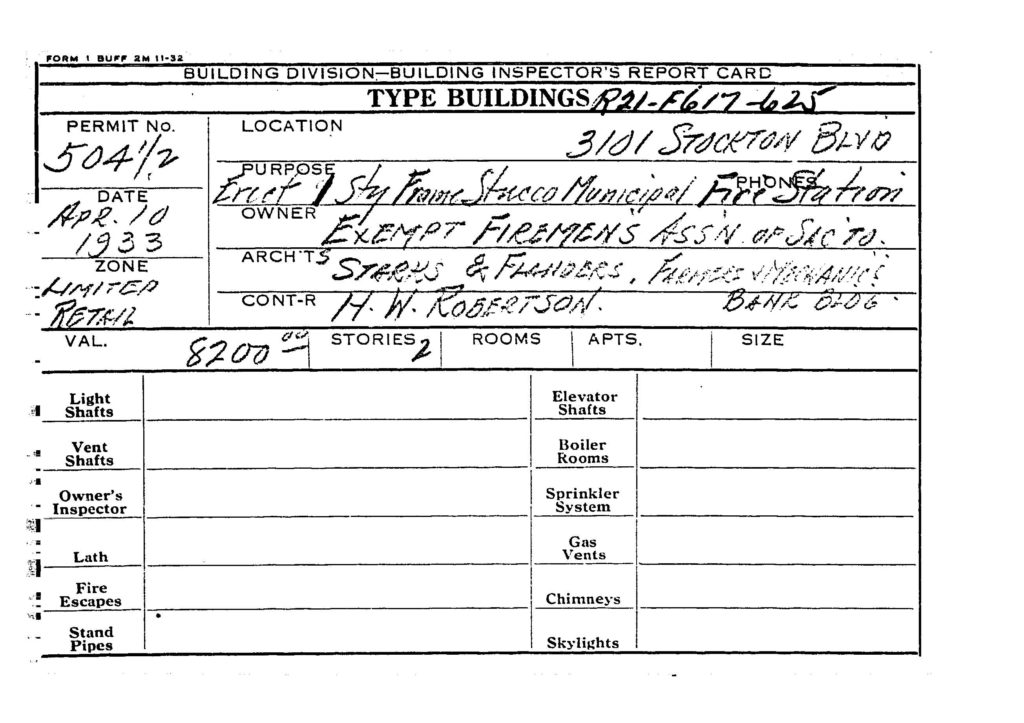 FORM 1 BUFF 2M 11-32
BUILDING DIVISION—BUILDING INSPECTOR'S REPORT CARD
TYPE BUILDINGS R21-F617-625
PERMIT NO. 504 1/2
LOCATION 3101 STOCKTON BLVD
PURPOSE Erect 1 Sty Frame Stucco Municipal Fire Station
PHONES
DATE APR. 10
1933
OWNER EXEMPT FIREMEN'S ASS'N. OF SACTO.
ARCH'TS STARKS & FLANDERS, FARMERS & MECHANICS
BANK BLDG.
ZONE LIMITED
RETAIL
CONT-R H. W. ROBERTSON.
VAL. 8200 00 STORIES 2 ROOMS APTS. SIZE
Light Shafts
Elevator Shafts
Vent Shafts
Boiler Rooms
Owner's Inspector
Sprinkler System
Lath
Gas Vents
Fire Escapes
Chimneys
Stand Pipes
Skylights